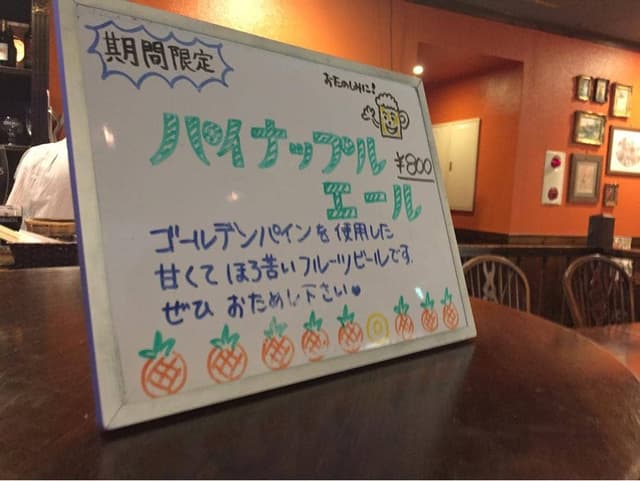 期間限定
おたのしみに!
パイナップル
¥800
エール
ゴールデンパインを使用した
甘くてほろ苦いフルーツビールです.
ぜひ おためし下さい♥